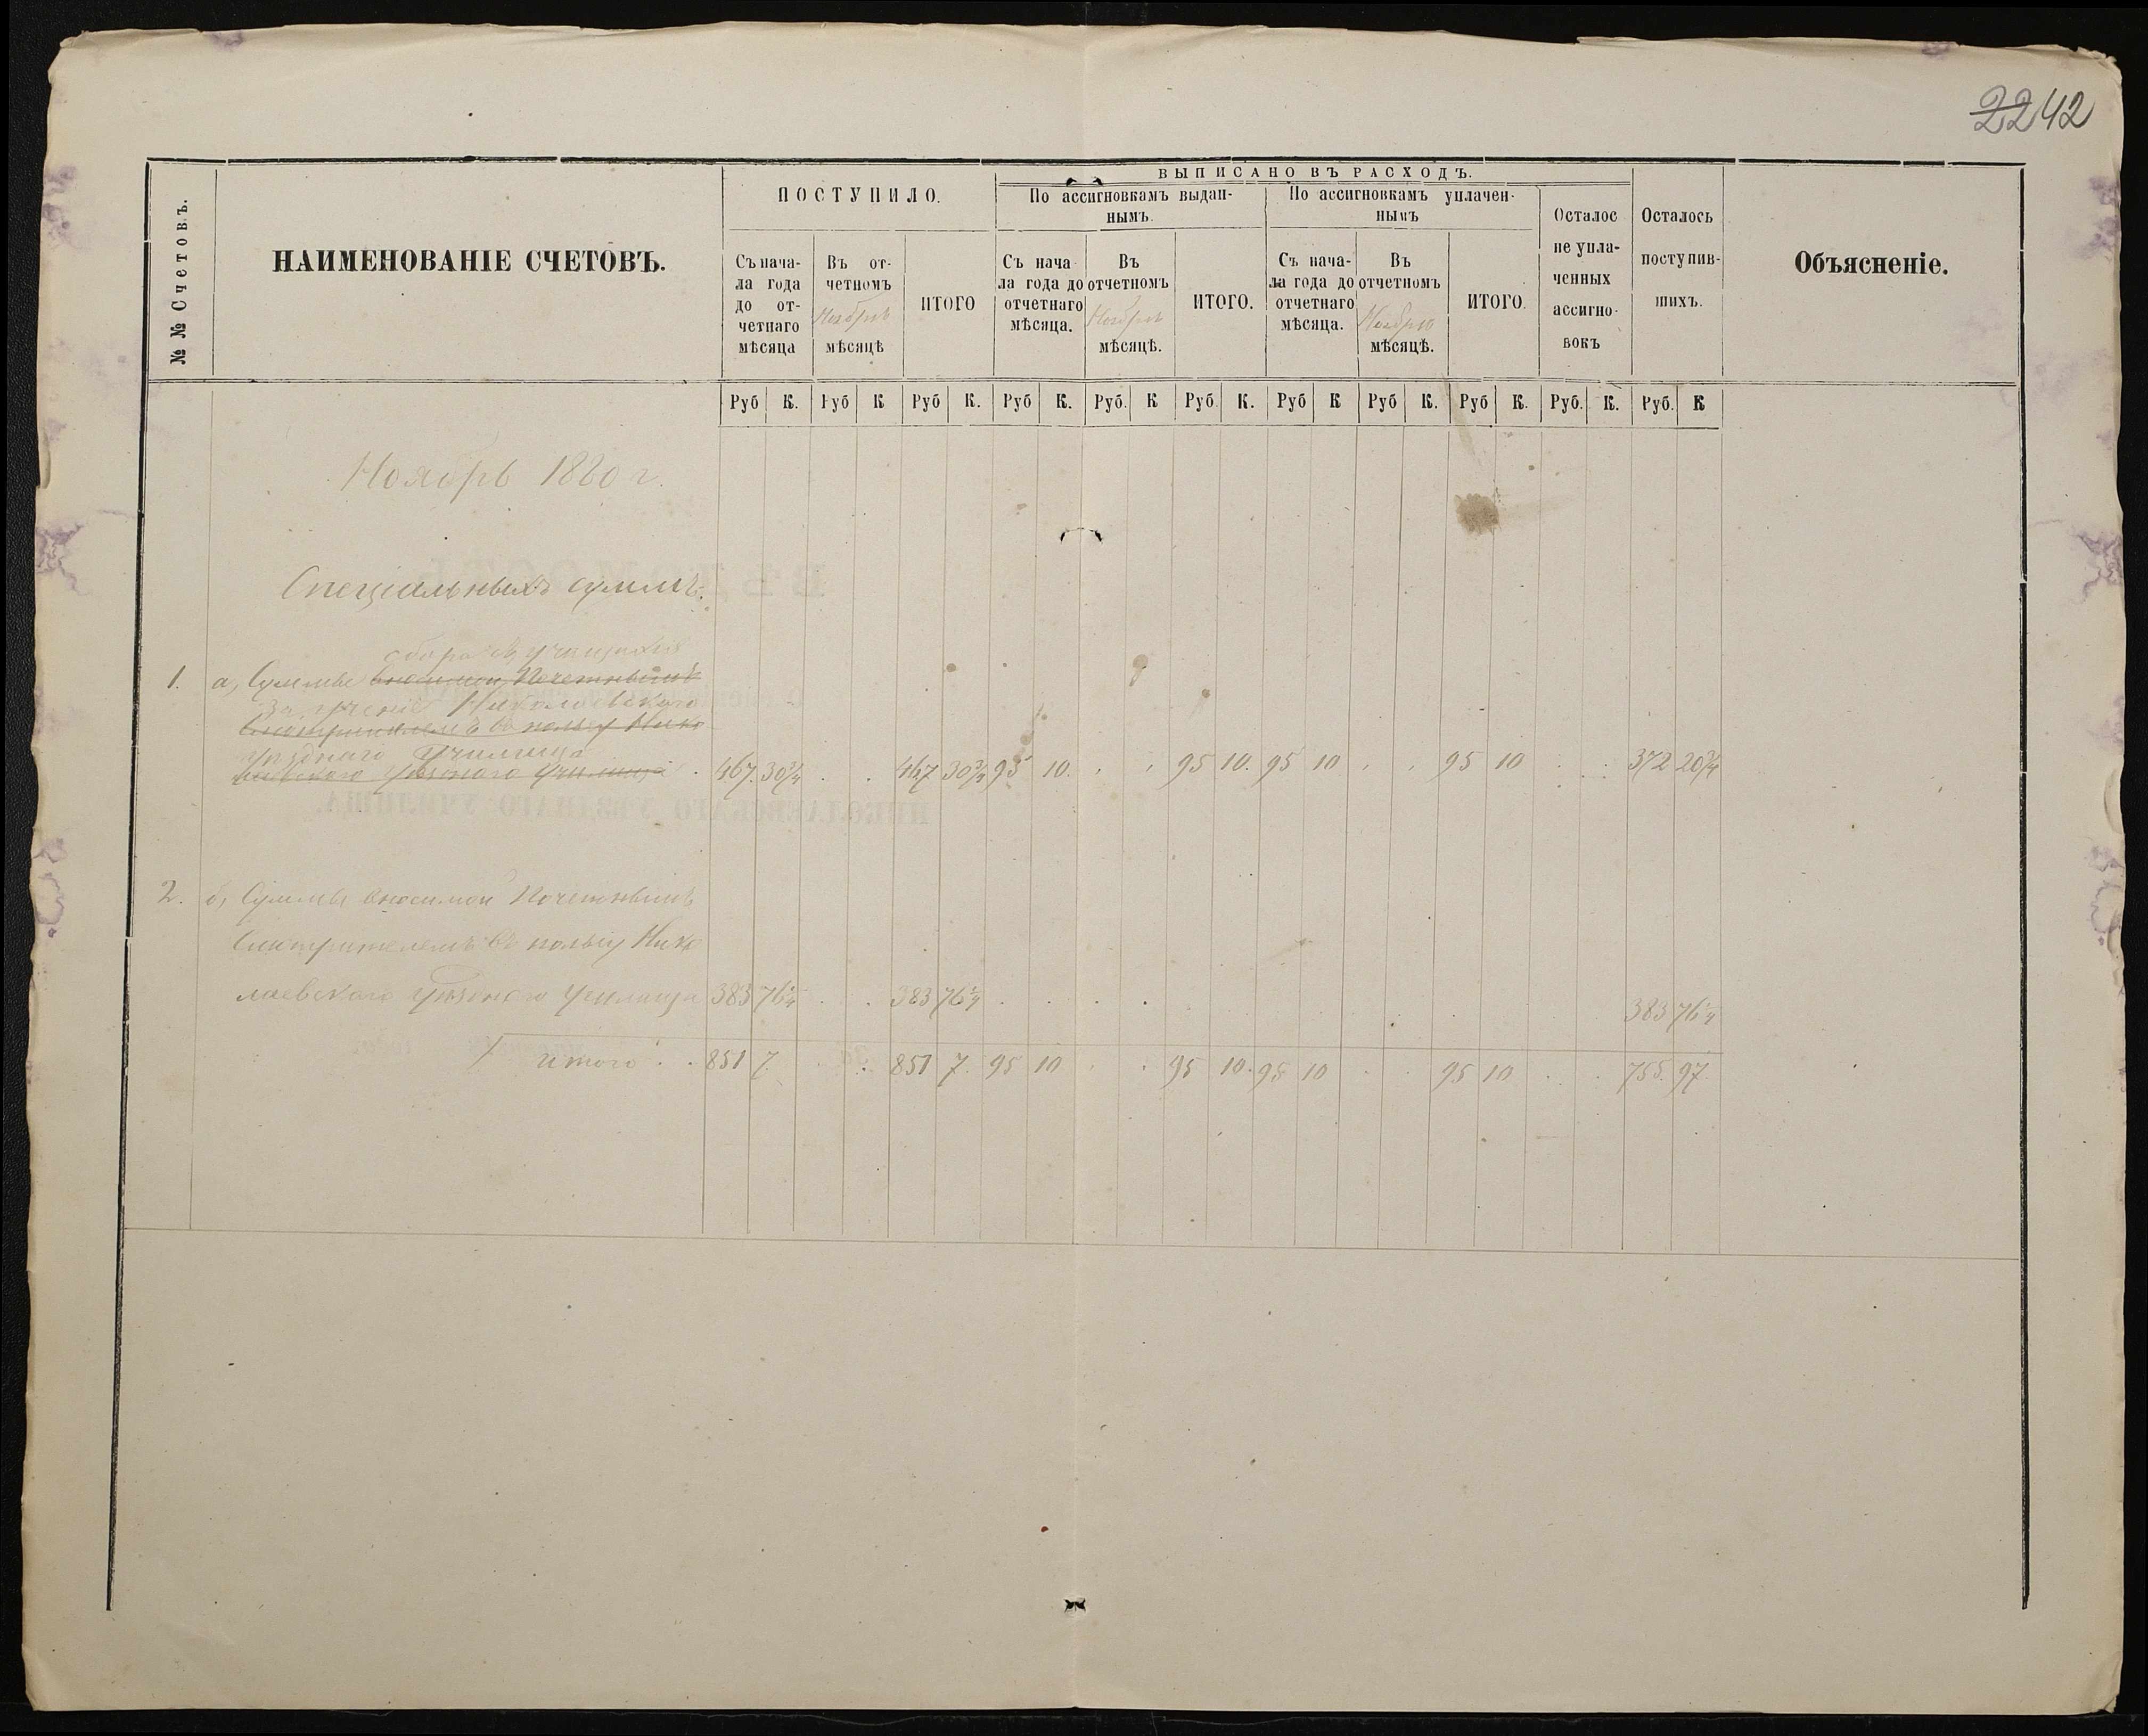 22 42
№ № Счетовъ.
НАИМЕНОВАНІЕ СЧЕТОВЪ.
ПОСТУПИЛО.
Съ нача-
ла года
до от-
четнаго
мѣсяца
Въ от-
четномъ
Ноябрѣ
мѣсяцѣ
ИТОГО
ВЫПИСАНО ВЪ РАСХОДЪ.
По ассигновкамъ выдан-
нымъ.
Съ нача
ла года до
отчетнаго
мѣсяца.
Въ
отчетномъ
Ноябрѣ
мѣсяцѣ.
ИТОГО.
По ассигновкамъ уплачен-
нымъ
Съ нача-
ла года до
отчетнаго
мѣсяца.
Въ
отчетномъ
Ноябрѣ
мѣсяцѣ.
ИТОГО.
Осталос
не упла-
ченных
ассигно-
вокъ
Осталось
поступив-
шихъ.
Объясненіе.
Руб К. Руб К Руб К. Руб К. Руб. К Руб. К. Руб К Руб К. Руб К. Руб. К. Руб. К
Ноябрь 1880 г.
Спеціальныхъ суммъ.
сбора съ учащихся
1. а, Суммы вносимой Почетнымъ
за ученіе Николаевскаго
Смотрителемъ въ пользу Нико
уѣзднаго Училища
лаевскаго уѣзднаго Училища . 467. 30 3/4 . . 467 30 3/4 95 10. . . 95 10. 95 10 . . 95 10 . . 372 20 3/4
2. б, Суммы вносимой Почетнымъ
Смотрителемъ въ пользу Нико
лаевскаго уѣзднаго Училища 383 76 1/4 . . 383 76 1/4 . . . . 383 76 1/4
итого . . 851 7. . 851 7. 95 10 . . 95 10. 95 10 . . 95 10 . . 755. 97.